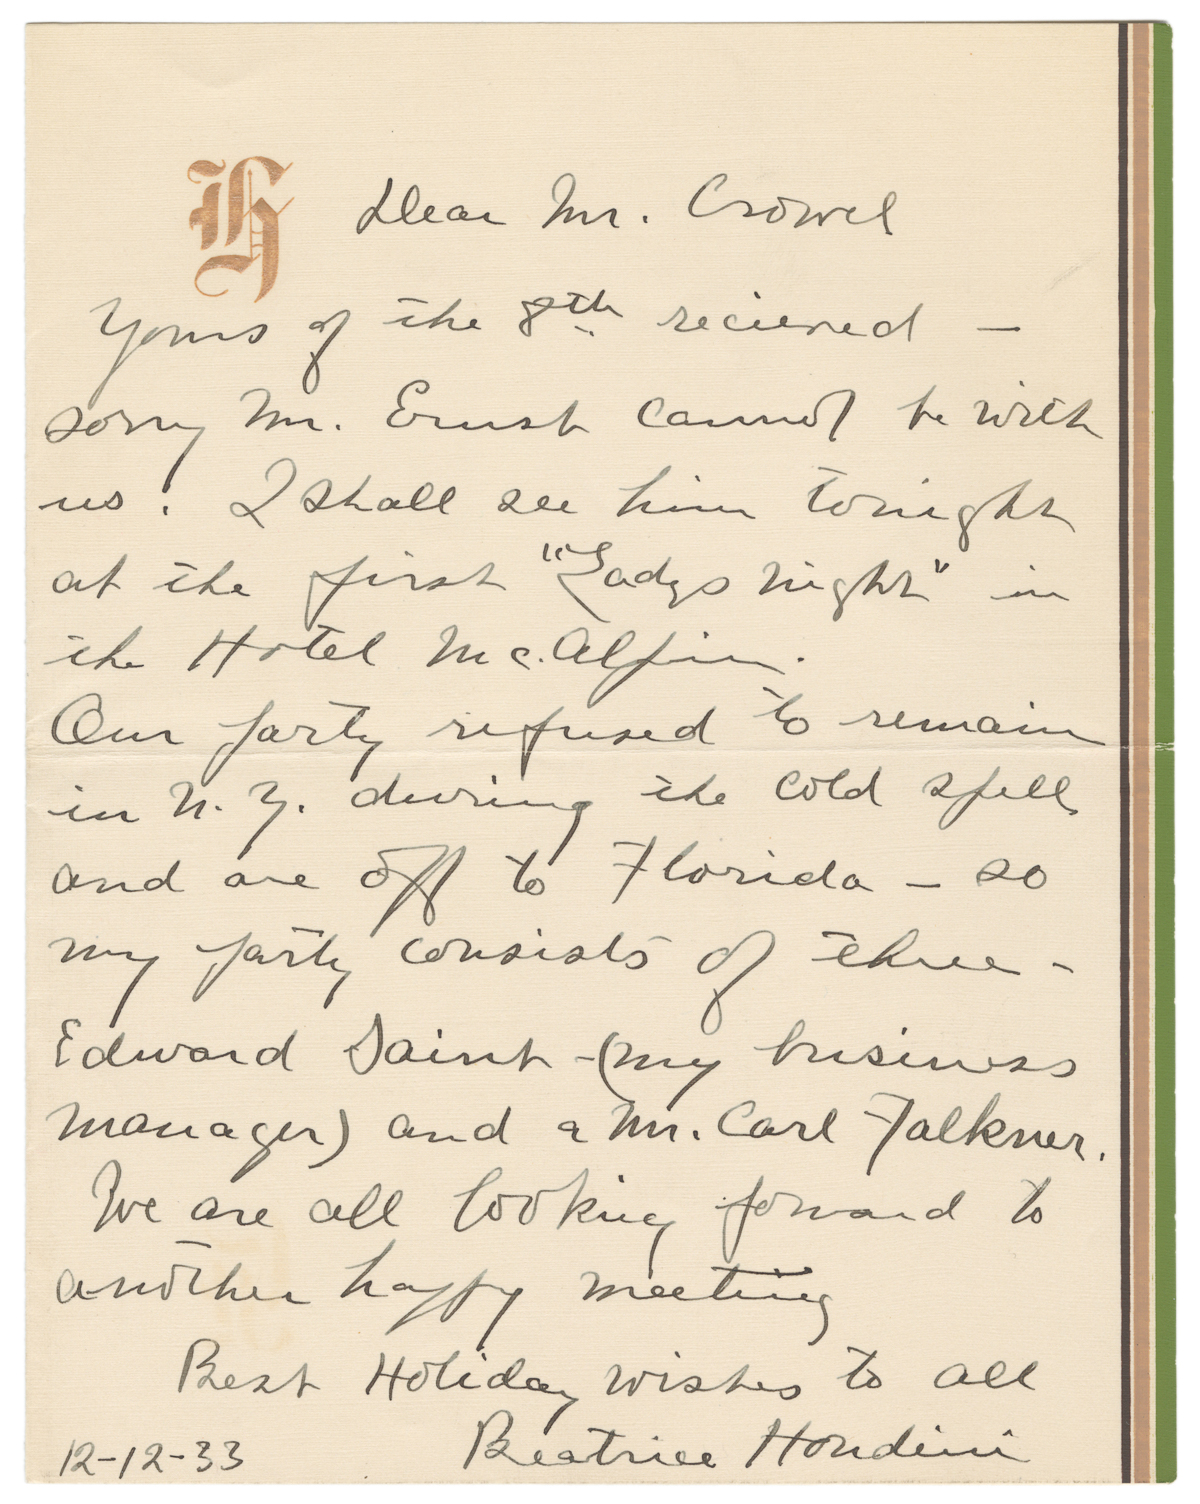 H
Dear Mr. Crowel
Yours of the 8th recieved –
sorry Mr. Ernst cannot be with
us. I shall see him tonight
at the first "Ladys night" in
the Hotel Mc.Alpin.
Our party refused to remain
in N. Y. during the cold spell
and are off to Florida – so
my party consists of three –
Edward Saint – (my business
manager) and a Mr. Carl Falkner.
We are all looking forward to
another happy meeting
Best Holiday wishes to all
12-12-33 Beatrice Houdini